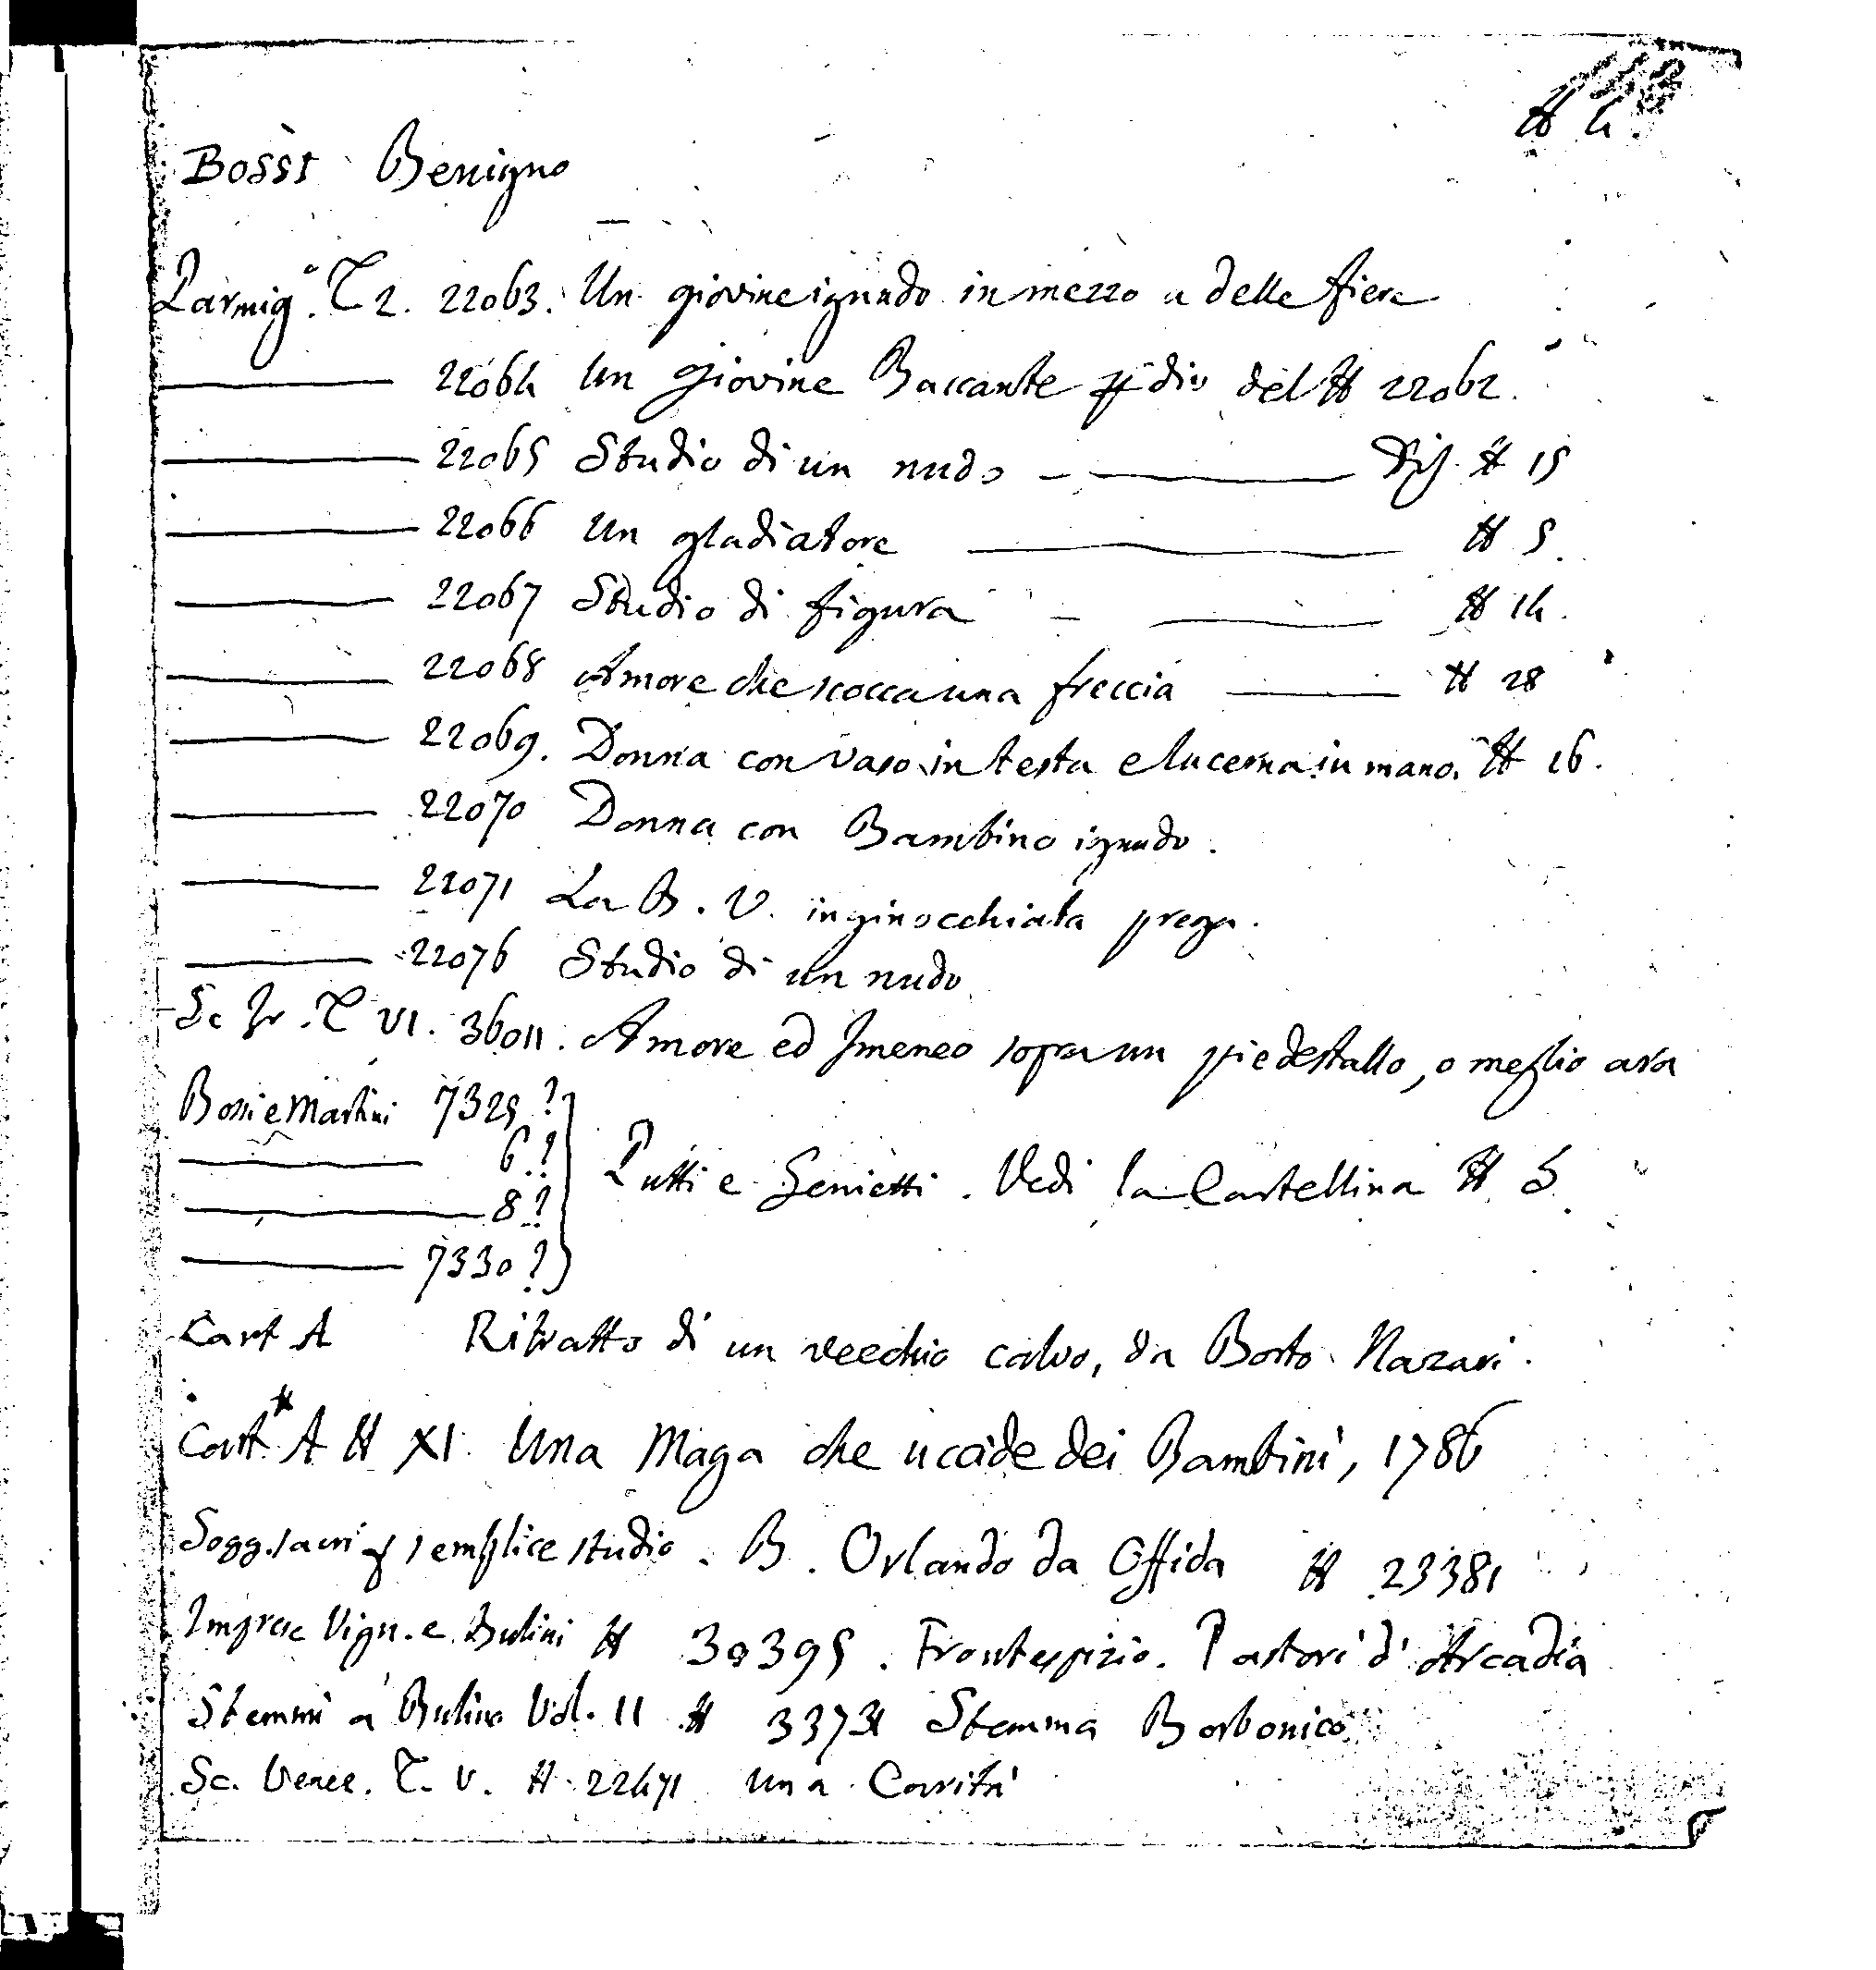 # 4.
Bossi Benigno
Parmig.º T 2. 22063. Un giovine ignudo in mezzo a delle fiere
——— 22064 Un giovine Baccante pp dio del # 22062.
——— 22065 Studio di un nudo — ——— Dis. # 15
——— 22066 Un gladiatore ——— # 5.
——— 22067 Studio di figura — ——— # 14.
——— 22068 Amore che scocca una freccia ——— # 28
——— 22069. Donna con vaso in testa e lucerna in mano. # 16.
——— 22070 Donna con Bambino ignudo.
——— 22071 La B. V. inginocchiata prega.
——— 22076 Studio di un nudo
Sc Fr. T VI. 36011. Amore ed Imeneo sopra un piedestallo, o meglio ara
Bossi e Martini 7325 ?
——— 6 ?
Putti e Genietti. Vedi la Cartellina # 5.
——— 8 ?
——— 7330 ?
Cart A Ritratto di un vecchio calvo, da Borto Nazari.
Cart* A # XI. Una Maga che uccide dei Bambini, 1786
Sogg. sacri p semplice studio. B. Orlando da Offida # 23381
Imprese Vign. e Bulini # 30395. Frontespizio. Pastori d'Arcadia
Stemmi a Bulino Vol. II # Stemma Borbonico
Sc. Venez. T. V. # 22471 una Carità